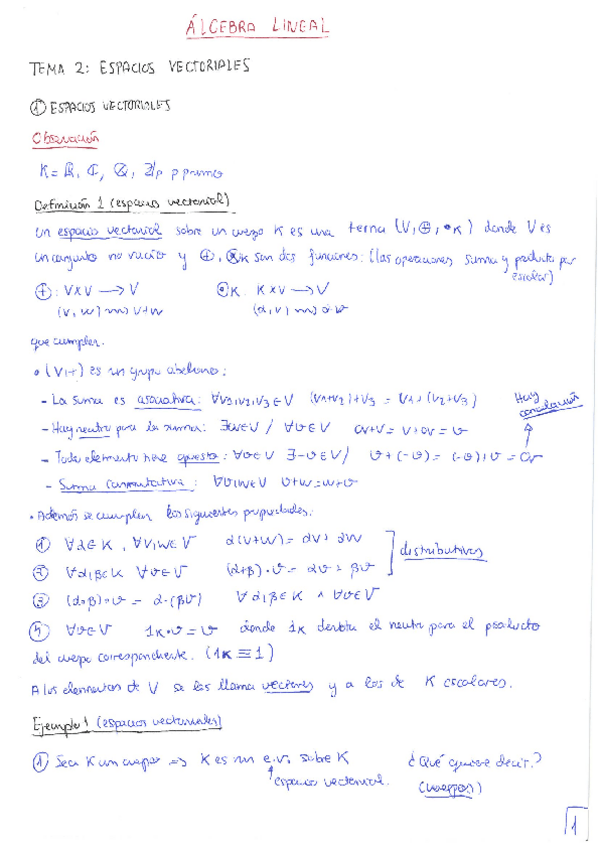 ÁLGEBRA LINEAL
TEMA 2: ESPACIOS VECTORIALES
① ESPACIOS VECTORIALES
Observación
K = ℝ, ℂ, ℚ, ℤ/p p primo
Definición 1 (espacio vectorial)
Un espacio vectorial sobre un cuerpo K es una terna (V, ⊕, •K) donde V es
un conjunto no vacío y ⊕, ⊙K son dos funciones: (las operaciones suma y producto por
escalar)
⊕: V×V → V ⊙K: K×V → V
(v, w) ⇝ v+w (α, v) ⇝ α·v
que cumplen.
• (V, +) es un grupo abeliano:
- La suma es asociativa: ∀v₁, v₂, v₃ ∈ V (v₁+v₂)+v₃ = v₁+(v₂+v₃)
Hay
cancelación
- Hay neutro para la suma: ∃ 0v ∈ V / ∀v ∈ V 0v+v = v+0v = v
- Todo elemento tiene opuesto: ∀v ∈ V ∃ -v ∈ V / v+(-v) = (-v)+v = 0v
- Suma conmutativa: ∀v, w ∈ V v+w = w+v
• Además se cumplen las siguientes propiedades:
① ∀α ∈ K, ∀v, w ∈ V α(v+w) = αv + αw
② ∀α, β ∈ K ∀v ∈ V (α+β)·v = αv + βv
distributivas
③ (α·β)·v = α·(βv) ∀α, β ∈ K ∧ ∀v ∈ V
④ ∀v ∈ V 1K·v = v donde 1K denota el neutro para el producto
del cuerpo correspondiente. (1K ≡ 1)
A los elementos de V se les llama vectores y a los de K escalares.
Ejemplo 1 (espacios vectoriales)
① Sea K un cuerpo ⇒ K es un e.v. sobre K ¿Qué quiere decir?
espacio vectorial.
1